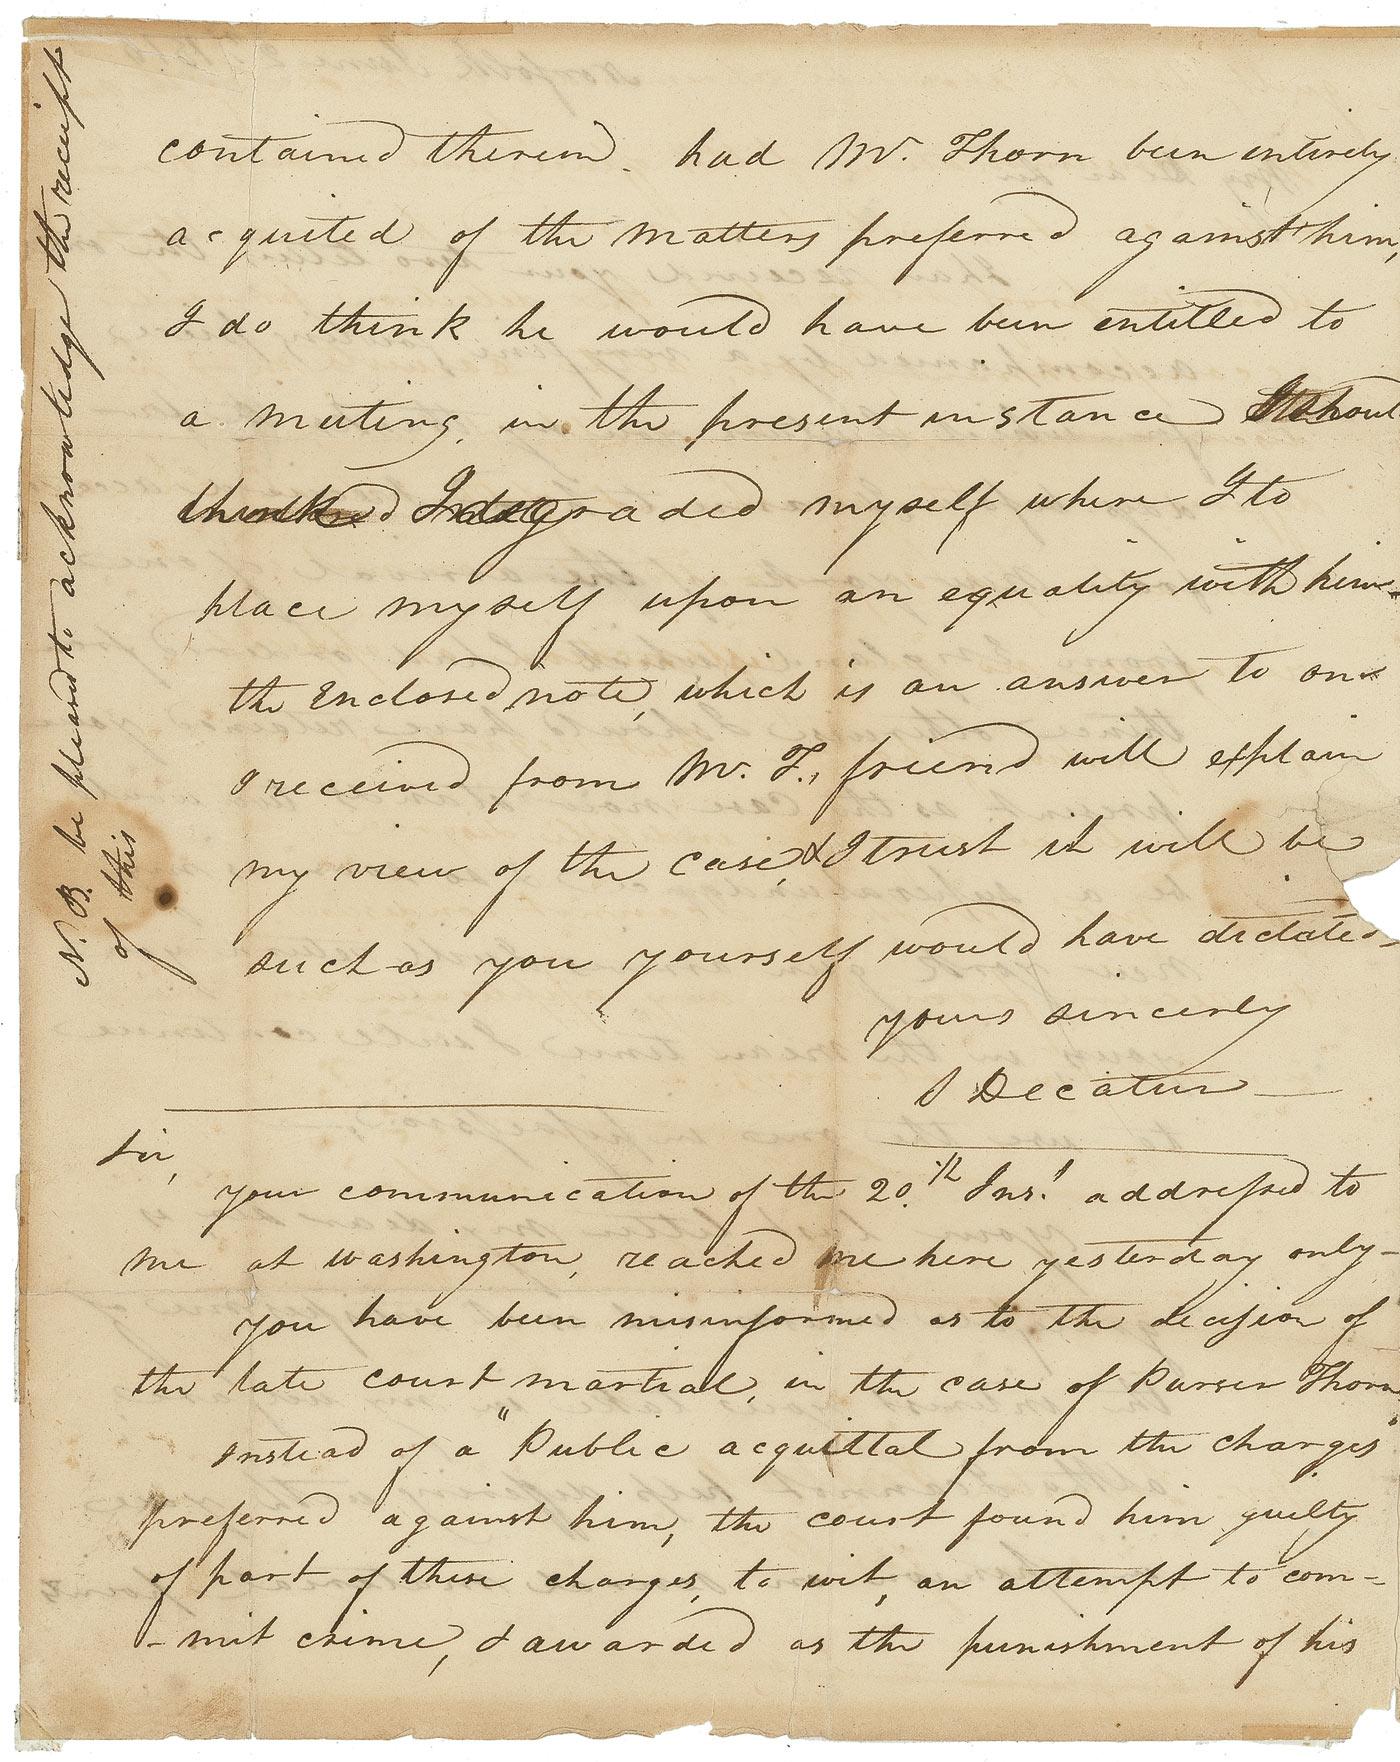 contained therein. had Mr. Thorn been entirely
acquited of the matters preferred against him,
I do think he would have been entitled to
a meeting, in the present instance I shoul
think degraded myself where I to
place myself upon an equality with him.
the Enclosed note, which is an answer to one
I received from Mr. T., friend will explain
my view of the case, & I trust it will be
such as you yourself would have dictated
yours sincerly
S Decatur
Sir,
your communication of the 20.th Inst. addressed to
me at washington, reached me here yesterday only-
you have been misinformed as to the decision of
the late court martial, in the case of Purser Thorn
instead of a "Public acquittal from the charges"
preferred against him, the court found him guilty
of part of these charges, to wit, an attempt to com-
-mit crime, & awarded as the punishment of his
N. B. be pleased to acknowledge the receipt
of this